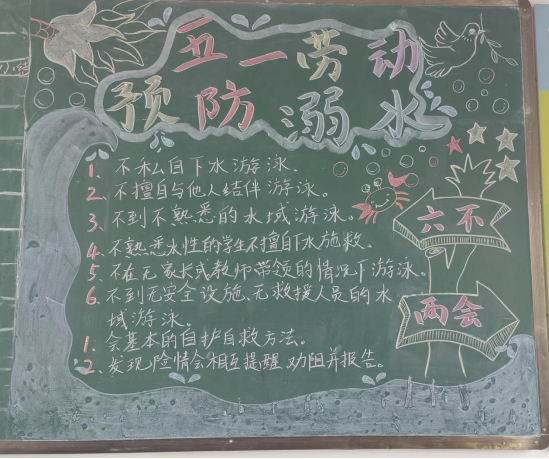 五一劳动
预防溺水
1. 不私自下水游泳.
2. 不擅自与他人结伴游泳。
3. 不到不熟悉的水域游泳。
4. 不熟悉水性的学生不擅自下水施救.
5. 不在无家长或教师带领的情况下游泳.
6. 不到无安全设施、无救援人员的水
域游泳.
1. 会基本的自护自救方法。
2. 发现险情会相互提醒 劝阻并报告。
六不
两会